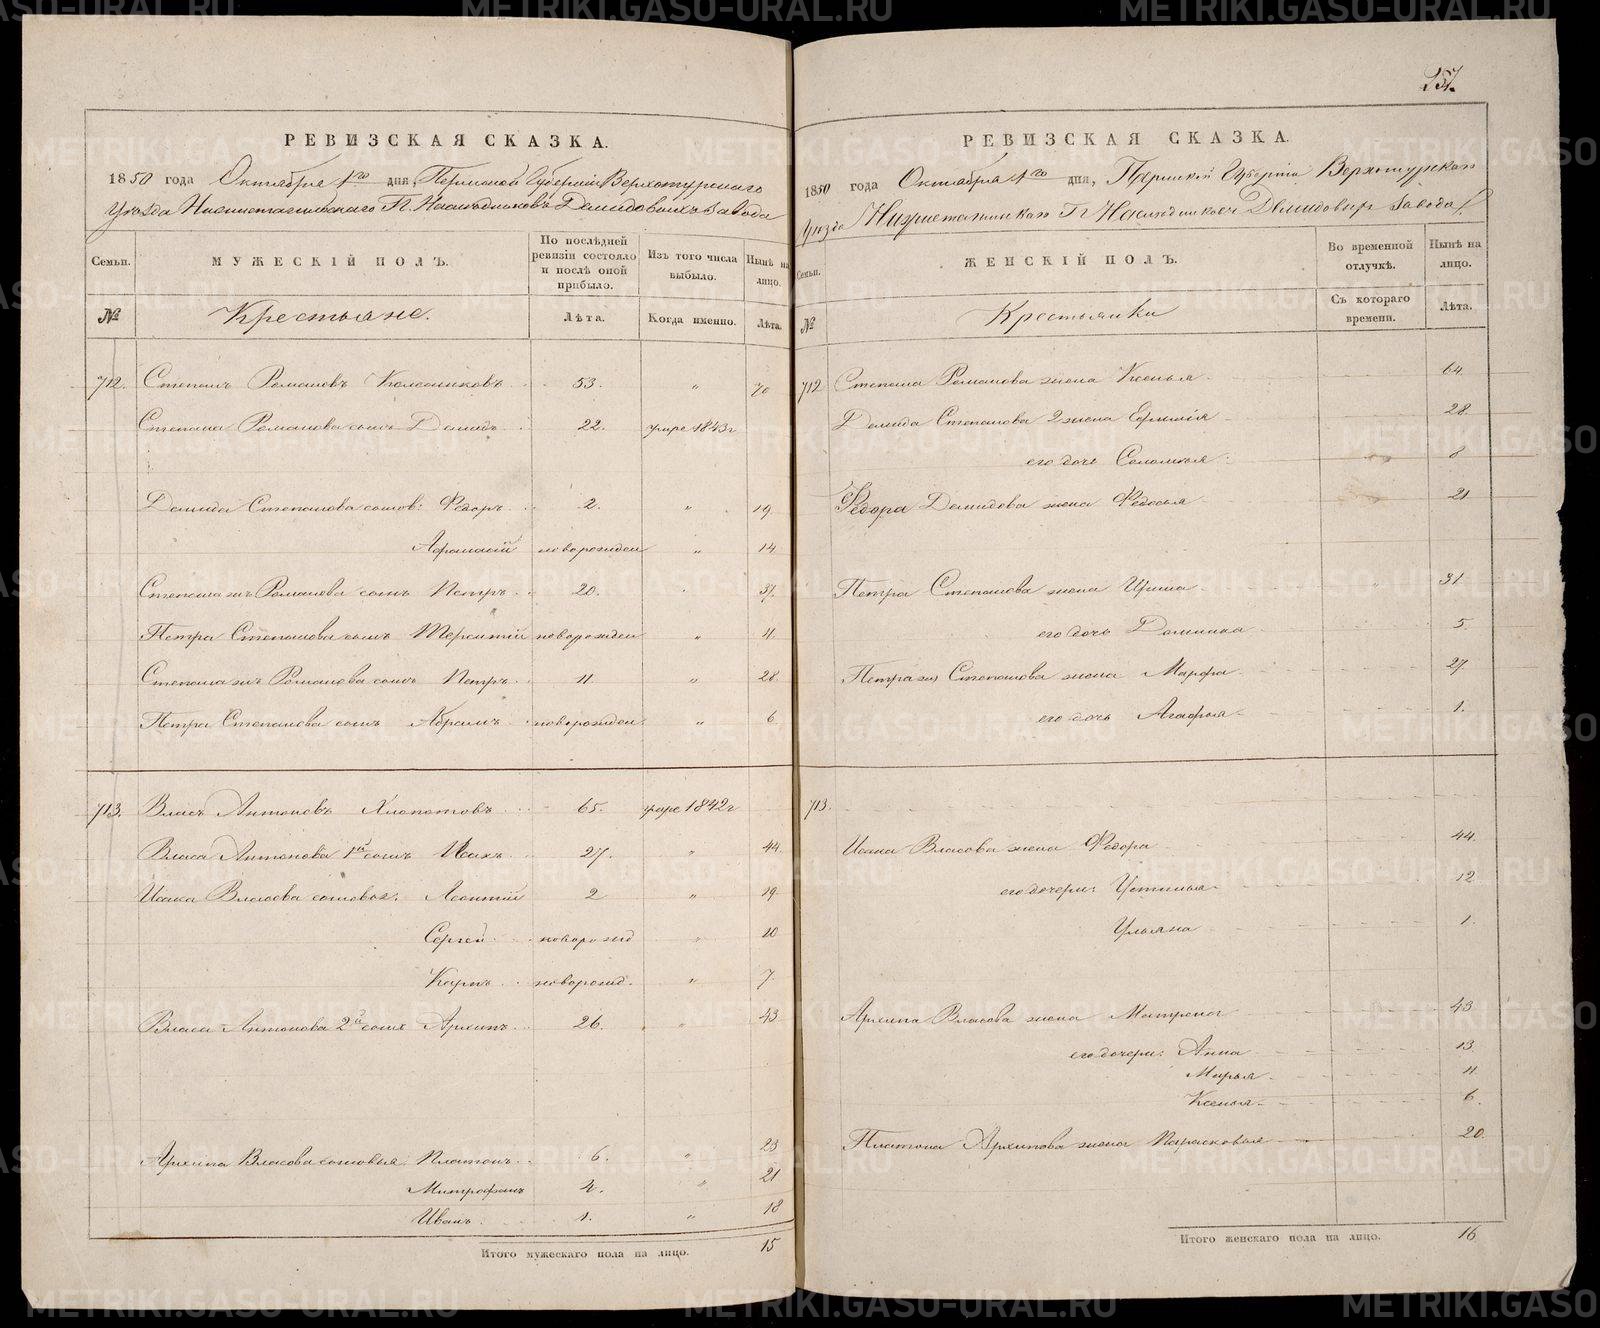 157.
РЕВИЗСКАЯ СКАЗКА.
1850 года Октября 1го дня, Пермской Губернии Верхотурскаго
Уезда Нижнетагильскаго Г. Наследниковъ Демидовыхъ Завода
Семьи.
МУЖЕСКІЙ ПОЛЪ.
По послѣдней ревизіи состояло и послѣ оной прибыло.
Изъ того числа выбыло.
Нынѣ на лицо.
№
Крестьяне.
Лѣта.
Когда именно.
Лѣта.
712. Степанъ Романовъ Колесниковъ 53. " 70
Степана Романова сынъ Демидъ 22. умре 1843г
Демида Степанова сынов: Федоръ 2. " 19
Афанасій новорожден " 14
Степана Романова сынъ Петръ 20. " 37.
Петра Степанова сынъ Терентій новорожден " 11.
Степана Романова сынъ Петръ 11 " 28
Петра Степанова сынъ Абрамъ новорожден " 6
713. Власъ Антоновъ Хлопотовъ 65. умре 1842г
Власа Антонова 1й сынъ Исакъ 27. " 44.
Исака Власова сыновья: Леонтій 2 " 19
Сергей новорожд " 10
Карпъ новорожд. " 7.
Власа Антонова 2й сынъ Архипъ 26. " 43
Архипа Власова сыновья: Платонъ 6. " 23
Митрофанъ 4. " 21
Иванъ 1. " 18
Итого мужескаго пола на лицо. 15
РЕВИЗСКАЯ СКАЗКА.
1850 года Октября 1го дня, Пермской Губерніи Верхотурскаго
Уезда Нижнетагильскаго Гг Наследниковъ Демидовыхъ Завода
Семьи.
ЖЕНСКІЙ ПОЛЪ.
Во временной отлучкѣ.
Нынѣ на лицо.
№
Крестьянки
Съ котораго времени.
Лѣта.
712 Степана Романова жена Ксенья 64
Демида Степанова 2 жена Ефимія 28.
его дочь Соломія 8
Федора Демидова жена Федосья 21
Петра Степанова жена Ирина 31.
его дочь Домника 5.
Петра Степанова жена Марфа 27
его дочь Агафья 1.
713.
Исака Власова жена Федора 44.
его дочери: Устинья 12
Ульяна 1
Архипа Власова жена Матрена 43
его дочери: Анна 13
Марья 11
Ксенья 6.
Платона Архипова жена Парасковья 20.
Итого женскаго пола на лицо. 16
METRIKI.GASO-URAL.RU